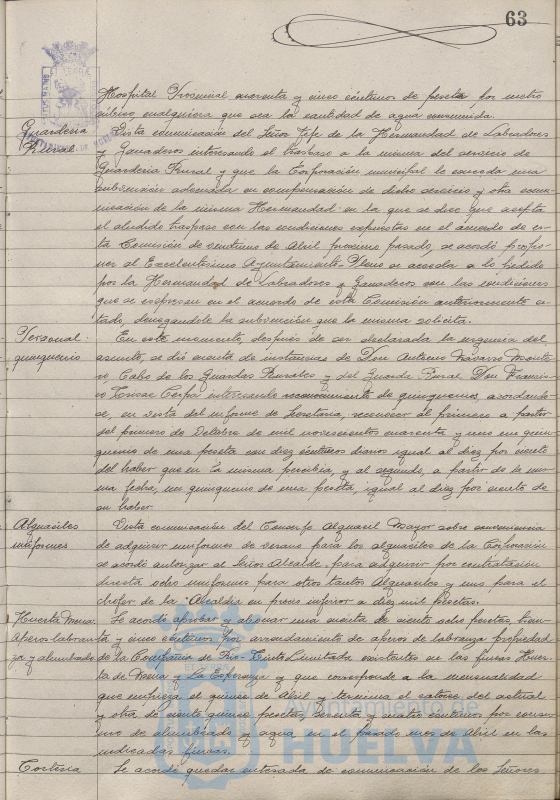 63
Hospital Provincial cuarenta y cinco céntimos de peseta por metro
cúbico cualquiera que sea la cantidad de agua consumida.
Guardería Rural.
Vista comunicación del Señor Jefe de la Hermandad de Labradores
y Ganaderos interesando el traspaso a la misma del servicio de
Guardería Rural y que la Corporación municipal le conceda una
subvención adecuada en compensación de dicho servicio y otra comu-
nicación de la misma Hermandad en la que se dice que acepta
el aludido traspaso con las condiciones expuestas en el acuerdo de es-
ta Comisión de veintiuno de Abril próximo pasado, se acordó propo-
ner al Excelentísimo Ayuntamiento Pleno se acceda a lo pedido
por la Hermandad de Labradores y Ganaderos con las condiciones
que se expresan en el acuerdo de esta Comisión anteriormente ci-
tado, denegándole la subvención que la misma solicita.
Personal quinquenio
En este momento, después de ser declarada la urgencia del
asunto, se dió cuenta de instancias de Don Antonio Navarro Monte-
ro, Cabo de los Guardas Rurales y del Guarda Rural Don Francis-
co Cerpa interesando reconocimiento de quinquenios, acordando-
se, en vista del informe de Secretaría, reconocer al primero a partir
del primero de Octubre de mil novecientos cuarenta y uno un quin-
quenio de una peseta con diez céntimos diarios igual al diez por ciento
del haber que en la misma percibía, y al segundo, a partir de la mis-
ma fecha, un quinquenio de una peseta, igual al diez por ciento de
su haber.
Alguaciles uniformes
Vista comunicación del Conserje Alguacil Mayor sobre conveniencia
de adquirir uniformes de verano para los alguaciles de la Corporación
se acordó autorizar al Señor Alcalde para adquirir por contratación
directa ocho uniformes para otros tantos Alguaciles y uno para el
chófer de la Alcaldía en precio inferior a diez mil pesetas.
Huerta Mena. Aperos labranza y alumbrado
Se acordó aprobar y abonar una cuenta de ciento ocho pesetas, trein-
ta y cinco céntimos por arrendamiento de aperos de labranza propiedad
de la Compañía de Rio-Tinto Limitada existentes en las fincas Huer-
ta de Mena y La Esperanza y que corresponde a la mensualidad
que empieza el quince de Abril y termina el catorce del actual
y otra de ciento quince pesetas, setenta y cuatro céntimos por consu-
mo de alumbrado y agua en el pasado mes de Abril en las
indicadas fincas.
Cortesía
Se acordó quedar enterada de comunicación de los Señores
Ayuntamiento de
HUELVA